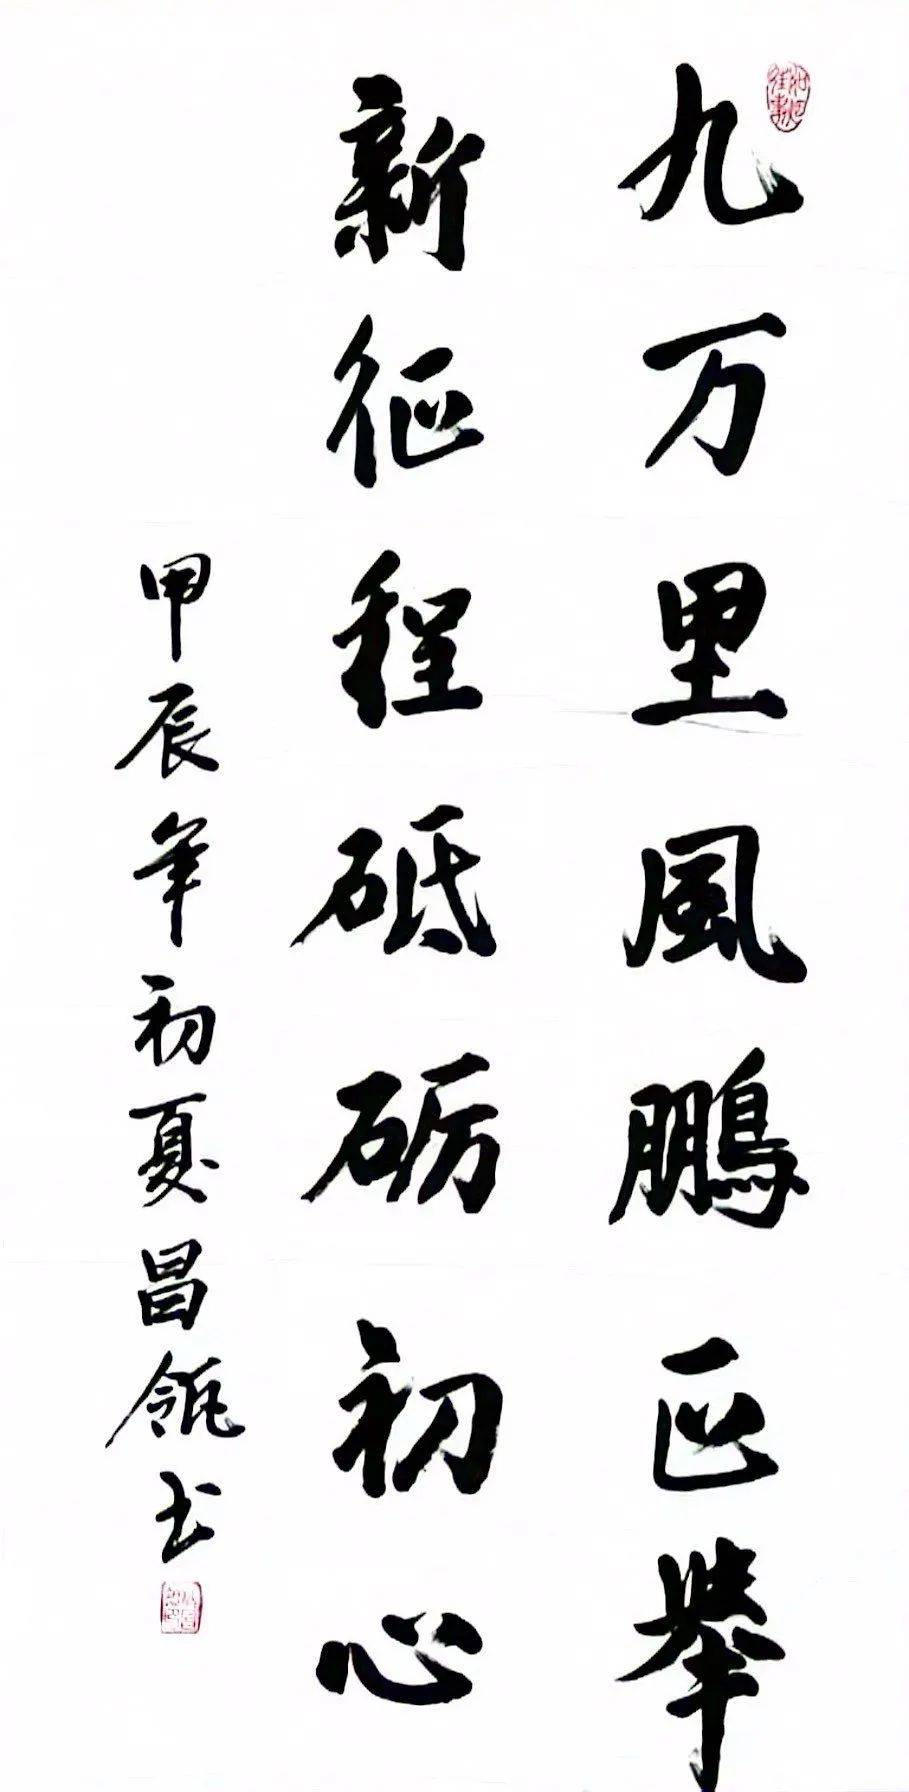 九万里風鵬正舉
新征程砥砺初心
甲辰年初夏昌瓴书